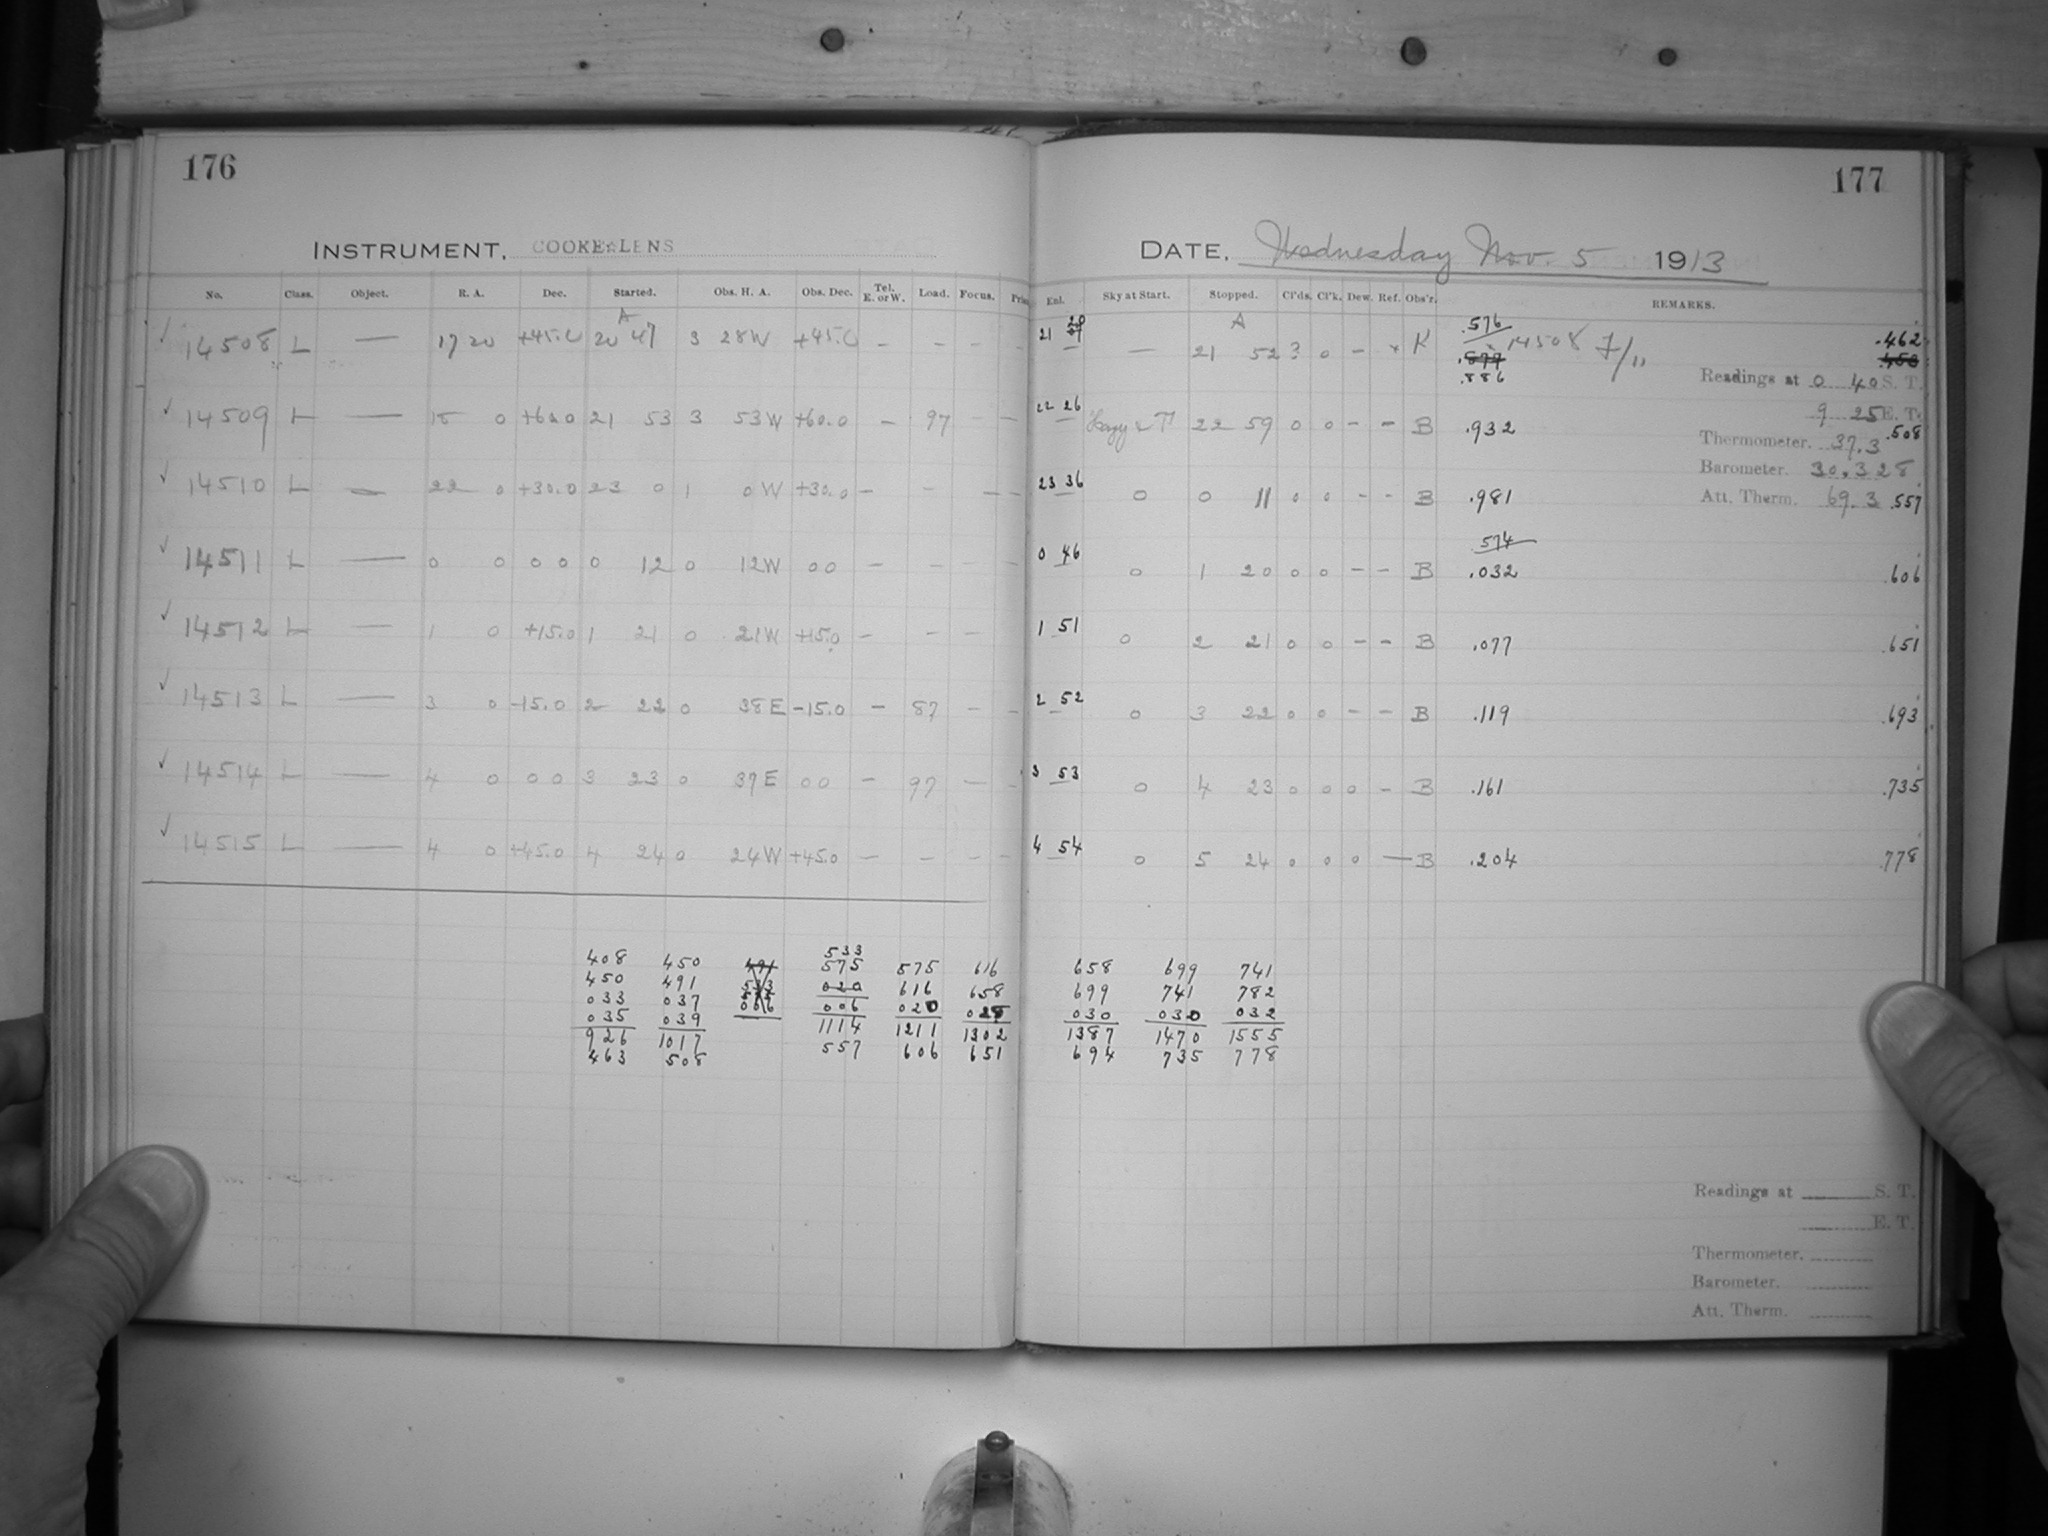 176
INSTRUMENT, COOKE☆LENS
No. Class. Object. R. A. Dec. Started. Obs. H. A. Obs. Dec. Tel. E. or W. Load. Focus.
14508 L — 17 20 +45.0 A 20 47 3 28W +45.0 — — — —
14509 L — 18 0 +60.0 21 53 3 53W +60.0 — 97 — —
14510 L — 22 0 +30.0 23 0 1 0W +30.0 — — — —
14511 L — 0 0 0 0 0 12 0 12W 0 0 — — — —
14512 L — 1 0 +15.0 1 21 0 21W +15.0 — — —
14513 L — 3 0 -15.0 2 22 0 38E -15.0 — 87 — —
14514 L — 4 0 0 0 3 23 0 37E 0 0 — 97 — —
14515 L — 4 0 +45.0 4 24 0 24W +45.0 — — — —
533
408 450 491 575 575 616
450 491 533 020 616 658
033 037 006 020 028
035 039
926 1017 1114 1211 1302
463 508 557 606 651
177
DATE, Wednesday Nov. 5 1913
Enl. Sky at Start. Stopped. Cl'ds. Cl'k. Dew. Ref. Obs'r. REMARKS.
21 20 — A 21 52 3 0 — K .576 14508 F/11 .462
.877 .450
.886 Readings at 0 40 S. T.
22 26 Hazy 22 59 0 0 — — B .932 9 25 E. T.
Thermometer. 37.3 .508
Barometer. 30.328
23 36 0 0 11 0 0 — — B .981 Att. Therm. 69.3 .557
.574
0 46 0 1 20 0 0 — — B .032 .606
1 51 0 2 21 0 0 — — B .077 .651
2 52 0 3 22 0 0 — — B .119 .693
3 53 0 4 23 0 0 0 — B .161 .735
4 54 0 5 24 0 0 0 — B .204 .778
658 699 741
699 741 782
030 030 032
1387 1470 1555
694 735 778
Readings at S. T.
E. T.
Thermometer.
Barometer.
Att. Therm.